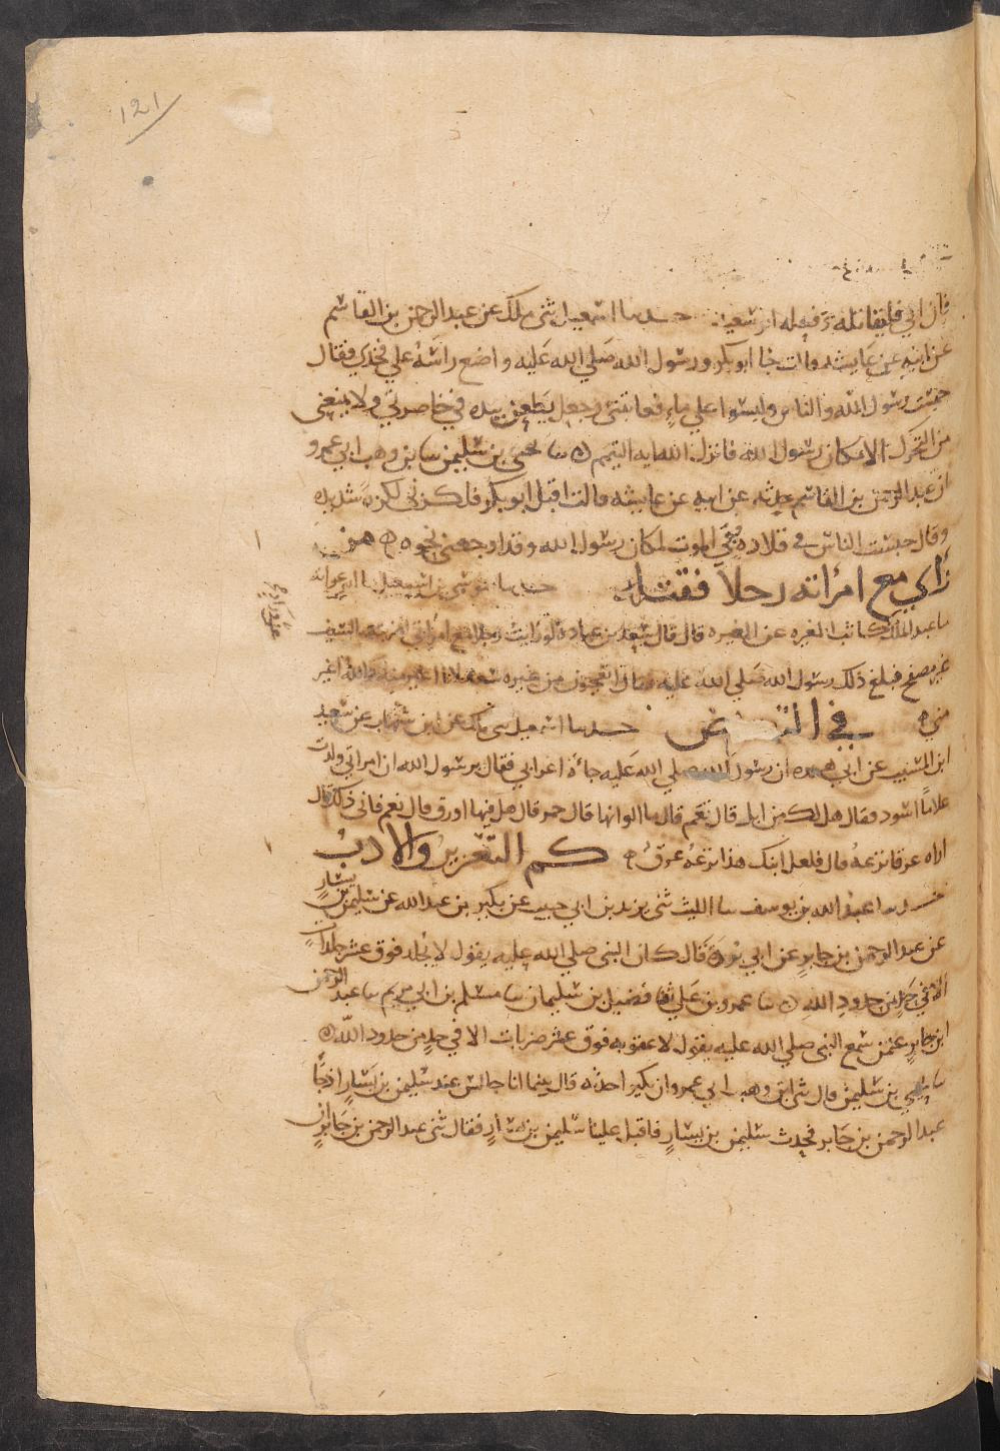 121
فان ابي فليقاتله وفعله ابو سعيد حدثنا اسمعيل ثنى ملك عن عبد الرحمن بن القاسم
عن ابيه عن عايشه قالت جا ابو بكر ورسول الله صلي الله عليه واضع راسه علي فخذي فقال
حبست رسول الله والناس وليسوا علي ماء فعاتبني وجعل يطعن بيده في خاصرتي ولا يمنعني
من التحرك الا مكان رسول الله فانزل الله ايه التيمم ه ثنا يحيى بن سليمن ثنا بن وهب ابي عمرو
ان عبد الرحمن بن القاسم حدثه عن ابيه عن عايشه قالت اقبل ابو بكر فلكزني لكزة شديده
وقال حبست الناس في قلاده فبي الموت لمكان رسول الله وقد اوجعني نحوه ه من
رأي مع امرأته رجلا فقتله حدثنا موسى بن اسمعيل ثنا ابو عوانه
ثنا عبد الملك كاتب المغيره عن المغيره قال قال سعد بن عباده لو رايت رجلا مع امراتي لضربته بالسيف
غير مصفح فبلغ ذلك رسول الله صلي الله عليه فقال اتعجبون من غيره سعد لانا اغير منه والله اغير
مني ه في التعريض حدثنا اسمعيل ثنى ملك عن ابن شهاب عن سعيد
ابن المسيب عن ابي هريره ان رسول الله صلي الله عليه جاءه اعرابي فقال يرسول الله ان امراتي ولدت
غلاما اسود فقال هل لك من ابل قال نعم قال ما الوانها قال حمر قال هل فيها اورق قال نعم فانى ذلك قال
اراه عرقا نزعه قال فلعل ابنك هذا نزعه عرق ه كم التعزير والادب
حدثنا عبد الله بن يوسف ثنا الليث ثنى يزيد بن ابي حبيب عن بكير بن عبد الله عن سليمن بن يسار
عن عبد الرحمن بن جابر عن ابي بردة قال كان النبي صلي الله عليه يقول لا يجلد فوق عشر جلدات
الا في حد من حدود الله ه ثنا عمرو بن علي ثنا فضيل بن سليمان ثنا مسلم بن ابي مريم ثنا عبد الرحمن
ابن جابر عمن سمع النبي صلي الله عليه يقول لا عقوبه فوق عشر ضربات الا في حد من حدود الله ه
ثنا يحيي بن سليمن قال ثنى ابن وهب ابي عمرو ان بكيرا حدثه قال بينما انا جالس عند سليمن بن يسار اذ جا
عبد الرحمن بن جابر فحدث سليمن بن يسار فاقبل علينا سليمن بن يسار فقال ثنى عبد الرحمن بن جابر ان